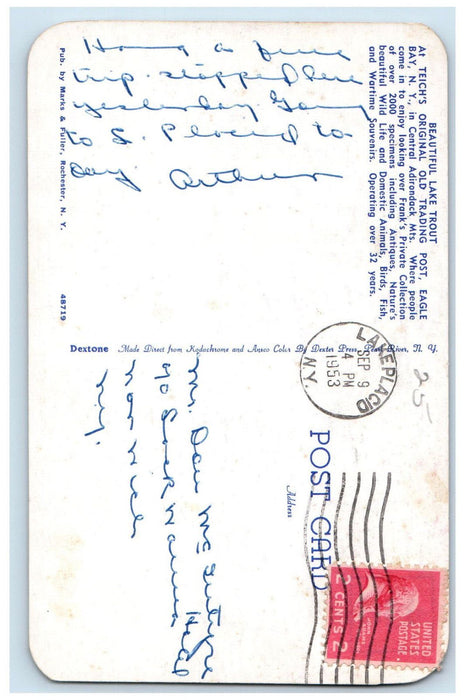 BEAUTIFUL LAKE TROUT
At TEICH'S ORIGINAL OLD TRADING POST, EAGLE
BAY, N. Y., in Central Adirondack Mts. Where people
come in to enjoy looking over Frank's Private Collection
of over 2000 specimens including Antiques, Nature's
beautiful Wild Life and Domestic Animals, Birds, Fish,
and Wartime Souvenirs. Operating over 32 years.
Having a fine
trip. stopped here
yesterday Going
to L. Placid to
day. Arthur
Pub. by Marks & Fuller, Rochester, N. Y.
48719
Dextone Made Direct from Kodachrome and Ansco Color By Dexter Press, Pearl River, N. Y.
25
LAKE PLACID
SEP 9
4 PM
1953
N.Y.
POST CARD
Address
UNITED
STATES
POSTAGE
2 CENTS 2
Mr. Dan McIntyre
Norwich
N.Y.